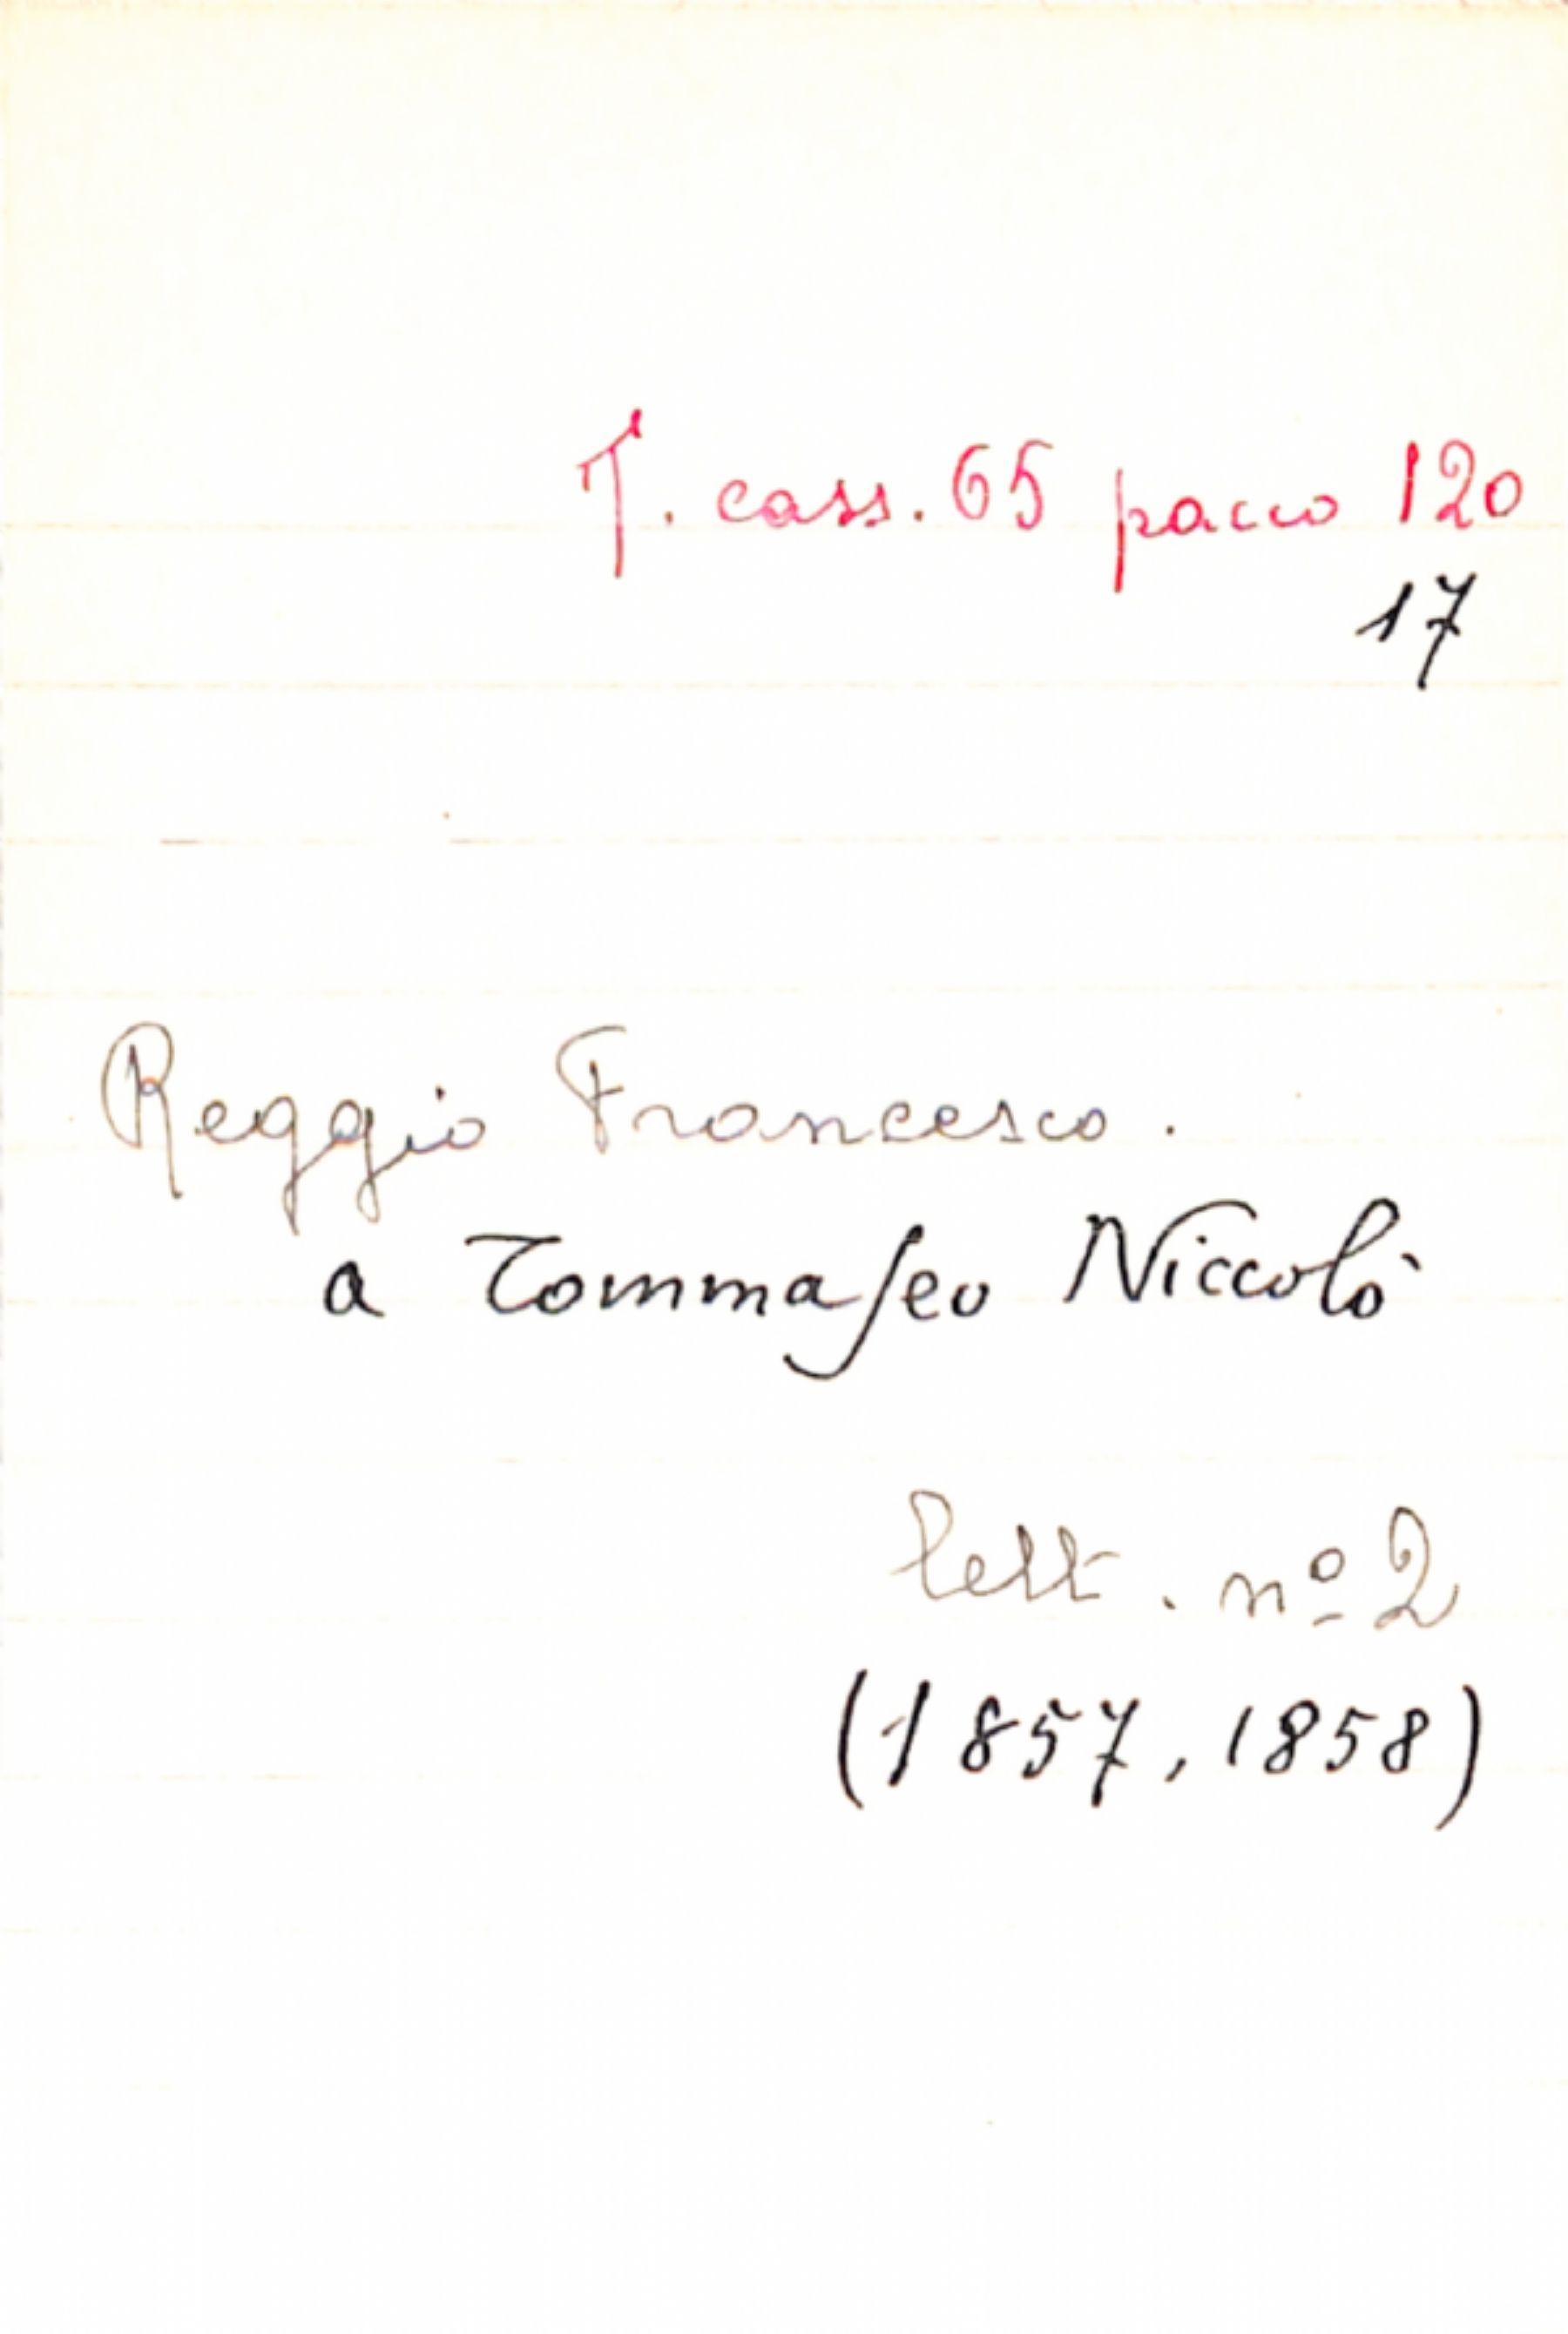 T. cass. 65 pacco 120
17
Reggio Francesco.
a Tommaseo Niccolò
lett. nº 2
(1857, 1858)